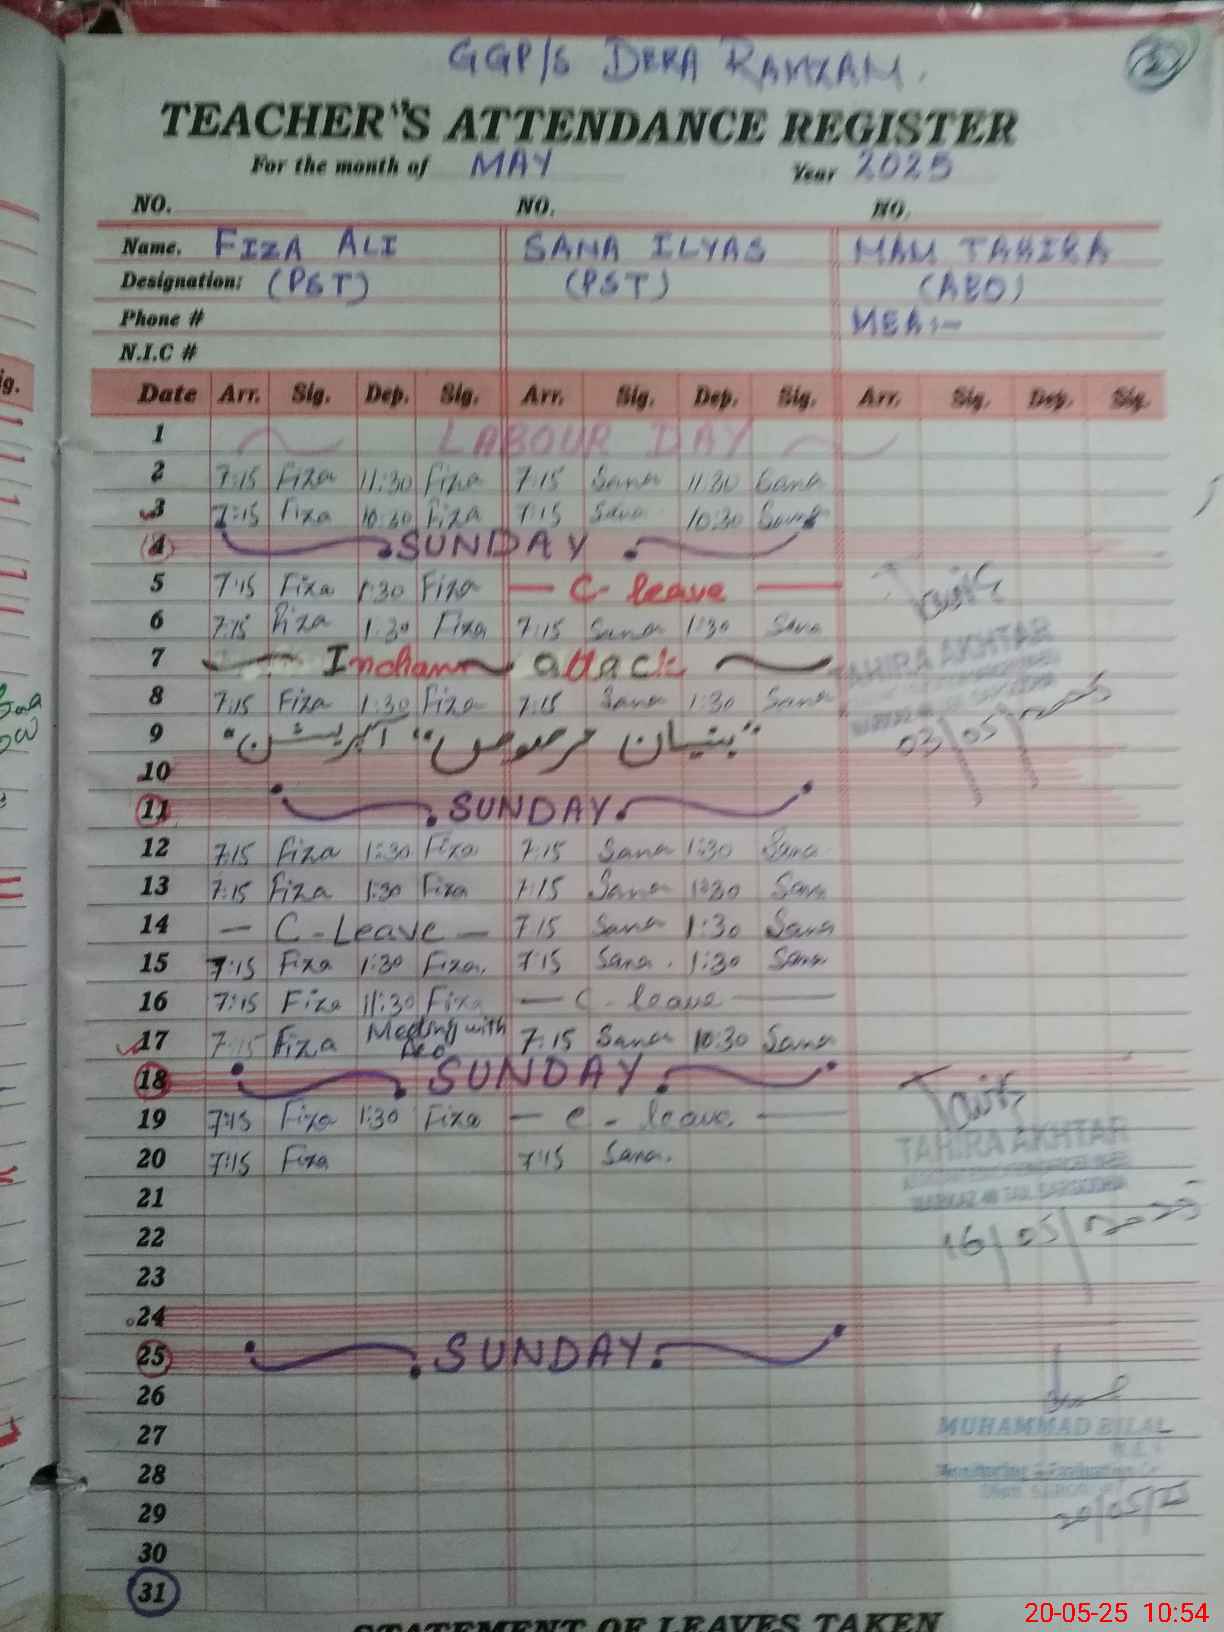 GGP/S DERA RAMZAM.
TEACHER"S ATTENDANCE REGISTER
For the month of MAY Year 2025
NO. NO. NO.
Name. FIZA ALI SANA ILYAS MAM TAHIRA
Designation: (PST) (PST) (AEO)
Phone # MEA:-
N.I.C #
ig. Date Arr. Sig. Dep. Sig. Arr. Sig. Dep. Sig. Arr. Sig. Dep. Sig.
1 LABOUR DAY
2 7:15 Fiza 11:30 Fiza 7:15 Sana 11:30 Sana
3 7:15 Fiza 10:30 Fiza 7:15 Sana 10:30 Sana
4 SUNDAY
5 7:15 Fiza 1:30 Fiza — C- leave —
6 7:15 Fiza 1:30 Fiza 7:15 Sana 1:30 Sana
7 Indian attack
TAHIRA AKHTAR
8 7:15 Fiza 1:30 Fiza 7:15 Sana 1:30 Sana
03/05/2025
9 "بنیان مرصوص" آپریشن"
10
11 SUNDAY
12 7:15 Fiza 1:30 Fiza 7:15 Sana 1:30 Sana
13 7:15 Fiza 1:30 Fiza 7:15 Sana 1:30 Sana
14 — C-Leave — 7:15 Sana 1:30 Sana
15 7:15 Fiza 1:30 Fiza. 7:15 Sana. 1:30 Sana
16 7:15 Fiza 11:30 Fiza — C- leave —
17 7:15 Fiza Meeting with AEO 7:15 Sana 10:30 Sana
18 SUNDAY
19 7:15 Fiza 1:30 Fiza — C- leave. —
TAHIRA AKHTAR
20 7:15 Fiza 7:15 Sana.
MARKAZ TAH. SARGODHA
21
16/05/2025
22
23
24
25 SUNDAY
26
MUHAMMAD BILAL
27
28
29
20/05/25
30
31
STATEMENT OF LEAVES TAKEN
20-05-25 10:54